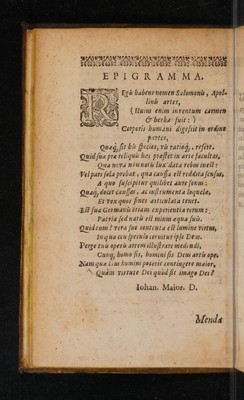 EPIGRAMMA.
REgis habens nomen Salomonis, Apol-
linis artes,
(Huius enim inventum carmen
& herba fuit:)
Corporis humani digessit in ordine
partes,
Quæq; sit his species, vis ratioq;, refert.
Quid sua præ reliquis hæc præstet in arte facultas,
Qua nova nonnullis lux data rebus inest:
Vel pars sola probat, qua caussa est reddita sensus,
A quo suscipitur quilibet aure sonus:
Quæq; docet caussas, ac instrumenta loquelæ,
Et vox quos fines articulata tenet.
Est sua Germanis etiam experientia rerum:
Patria sed natis est minus æqua suis.
Quid tum? vera suo contenta est lumine virtus,
In qua ceu speculo cernitur ipse Deus.
Perge tuis operis artem illustrare medendi,
Cumq; homo sis, homini sis Deus artis ope.
Nam quæ laus homini poterit contingere maior,
Quàm virtute Dei quòd sit imago Dei?
Iohan. Maior. D.
Menda